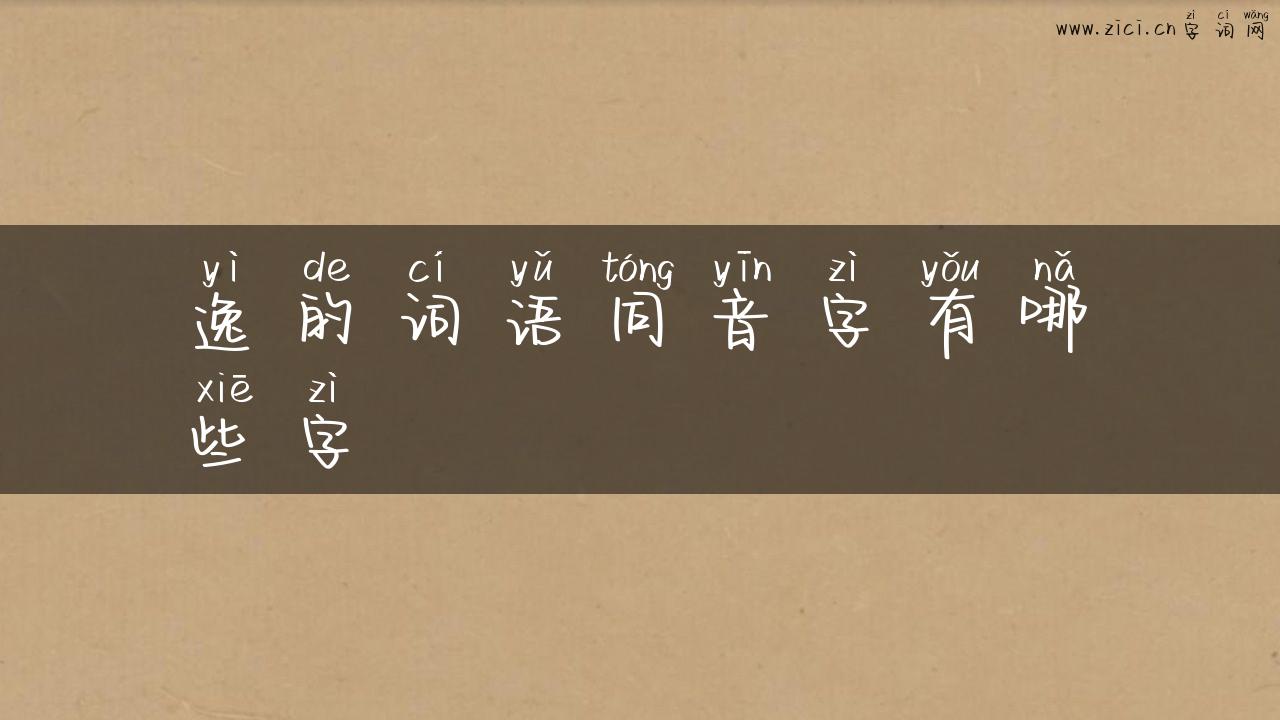 zì cí wǎng
www.zici.cn 字词网
yì de cí yǔ tóng yīn zì yǒu nǎ
逸的词语同音字有哪
xiē zì
些字